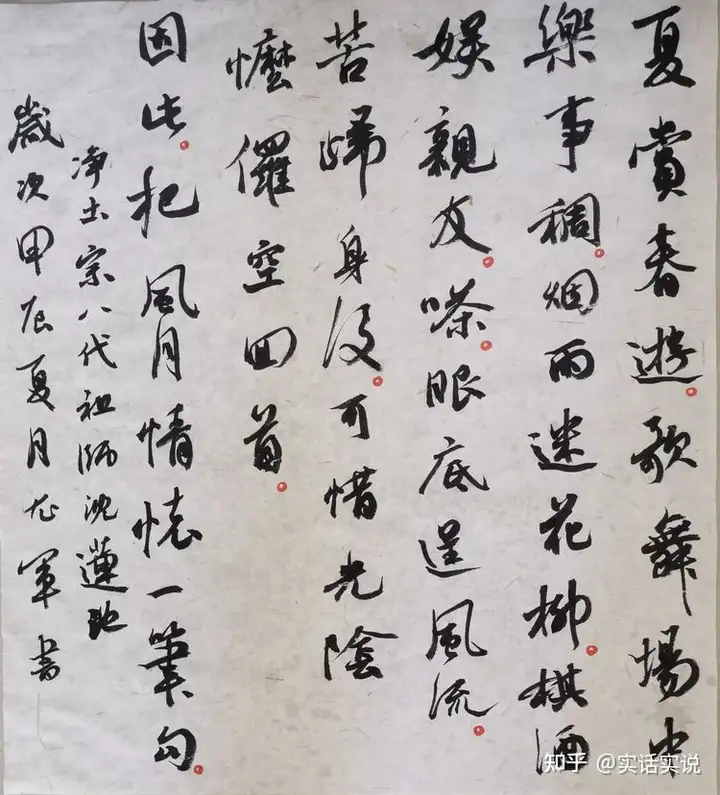 夏賞春遊。歌舞場中
樂事稠。烟雨迷花柳。棋酒
娱親友。嗏。眼底逞風流。
苦歸身後。可惜光陰
懡㒩空回首。
因此把風月情懷一筆勾。
净土宗八代祖師沈蓮池
歲次甲辰夏月龙軍書
知乎 @实话实说